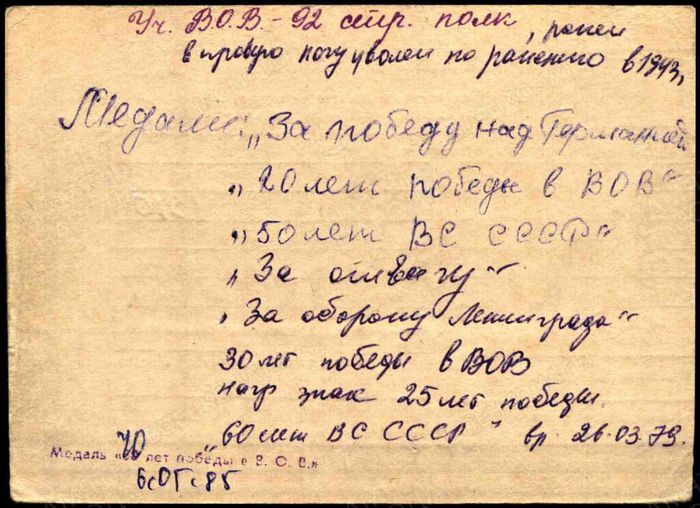 Уч. В.О.В. - 92 стр. полк, ранен
в правую ногу уволен по ранению в 1943г
Медали: „За победу над Германией
„20 лет победы в ВОВ"
„50 лет ВС СССР"
„За отвагу"
„За оборону Ленинграда"
30 лет победы в ВОВ
нагр знак 25 лет победы
„60 лет ВС СССР" вр. 26.03.79.
Медаль «40 лет победы в В. О. В.»
6.05.85